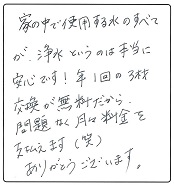 家の中で使用する水のすべて
が、浄水というのは本当に
安心です！年1回の3材
交換が無料だから
問題なく月々料金を
支払えます(笑)
ありがとうございます。